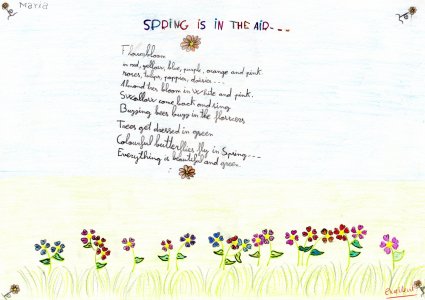 Maria
SPRING IS IN THE AIR...
Flowers bloom
in red, yellow, blue, purple, orange and pink.
roses, tulips, poppies, daisies...
Almond trees bloom in white and pink.
Swallows come back and sing
Buzzing bees buzz in the flowers
Trees get dressed in green
Colourful butterflies fly in Spring...
Everything is beautiful and green.